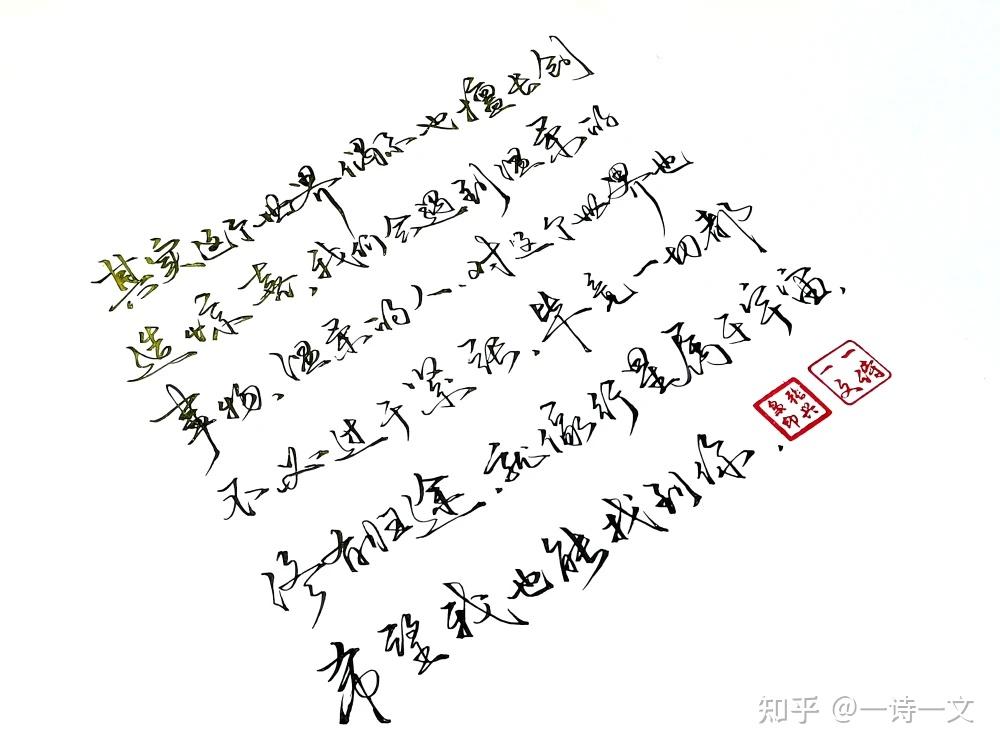 其实这个世界偶尔也擅长创
造惊喜,我们会遇到温柔的
事物、温柔的人.对这个世界也
不必过于紧张.毕竟一切都
终有归途.就像行星属于宇宙.
希望我也能找到你.
一诗
一文
知乎 @一诗一文